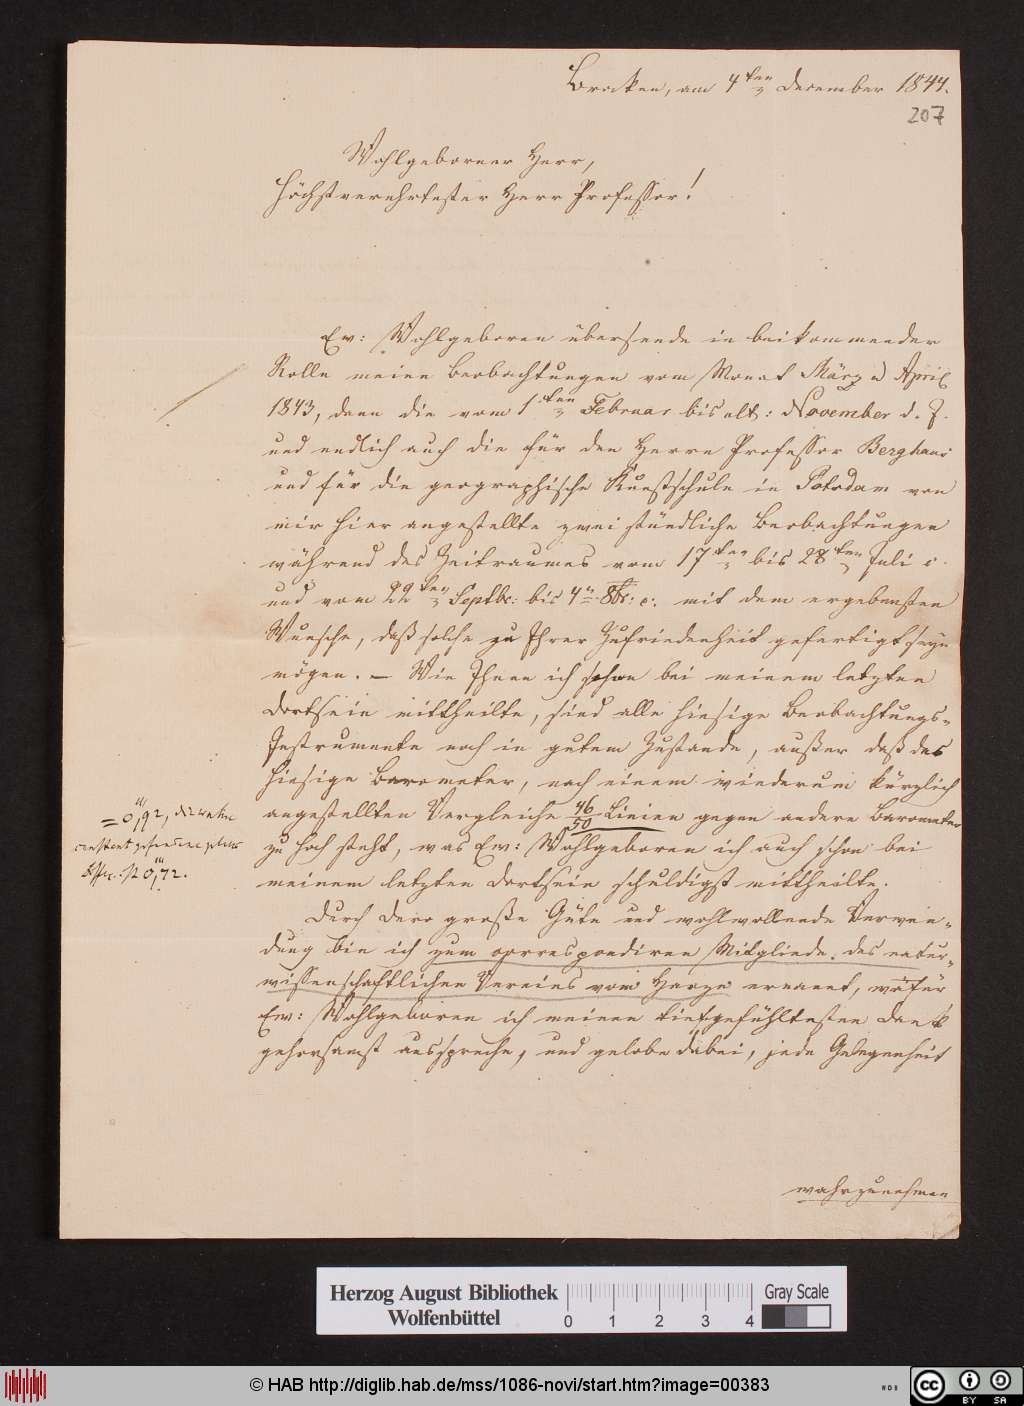 Brocken, am 4ten December 1844.
207
Wohlgeborner Herr,
Höchstverehrtester Herr Professor!
Ew: Wohlgeboren übersende in beikommender
Rolle meine Beobachtungen vom Monat März u April
1843, dann die vom 1ten Februar bis ult: November d. J.
und endlich auch die für den Herrn Professor Berghaus
und für die geographische Kunstschule in Potsdam von
mir hier angestellte zweistündliche Beobachtungen
während des Zeitraumes vom 17ten bis 28ten Juli c.
und vom 22ten Septbr: bis 4n 8br: c. mit dem ergebensten
Wunsche, daß solche zu Ihrer Zufriedenheit gefertigt seyn
mögen. – Wie Ihnen ich schon bei meinem letzten
Dortsein mittheilte, sind alle hiesige Beobachtungs-
Instrumente noch in gutem Zustande, außer daß das
hiesige Barometer, nach einem wiederum kürzlich
angestellten Vergleiche 46/50 Linien gegen andere Barometer
zu hoch steht, was Ew: Wohlgeboren ich auch schon bei
meinem letzten Dortsein schuldigst mittheilte.
= 0,'''92,
constant gefundene
Differ. 0,'''72.
Durch Dero große Güte und wohlwollende Verwen-
dung bin ich zum correspondiren Mitgliede des natur-
wissenschaftlichen Vereins vom Harze ernannt, wofür
Ew: Wohlgeboren ich meinen tiefgefühltesten Dank
gehorsamst ausspreche, und gelobe dabei, jede Gelegenheit
wahrzunehmen
Herzog August Bibliothek
Wolfenbüttel
0 1 2 3 4
Gray Scale
© HAB http://diglib.hab.de/mss/1086-novi/start.htm?image=00383
WDB
cc BY SA